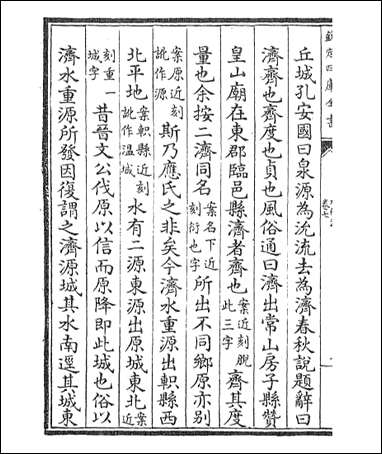 欽定四庫全書
丘城孔安國曰泉源為沇流去為濟春秋說題辭曰
濟齊也齊度也貞也風俗通曰濟出常山房子縣贊
皇山廟在東郡臨邑縣濟者齊也案近刻脫此三字齊其度
量也余按二濟同名案名下近刻衍也字所出不同鄉原亦别
案原近刻訛作源斯乃應氏之非矣今濟水重源出軹縣西
北平地案軹縣近刻訛作温城水有二源東源出原城東北案近
刻重一城字昔晉文公伐原以信而原降即此城也俗以
濟水重源所發因復謂之濟源城其水南逕其城東